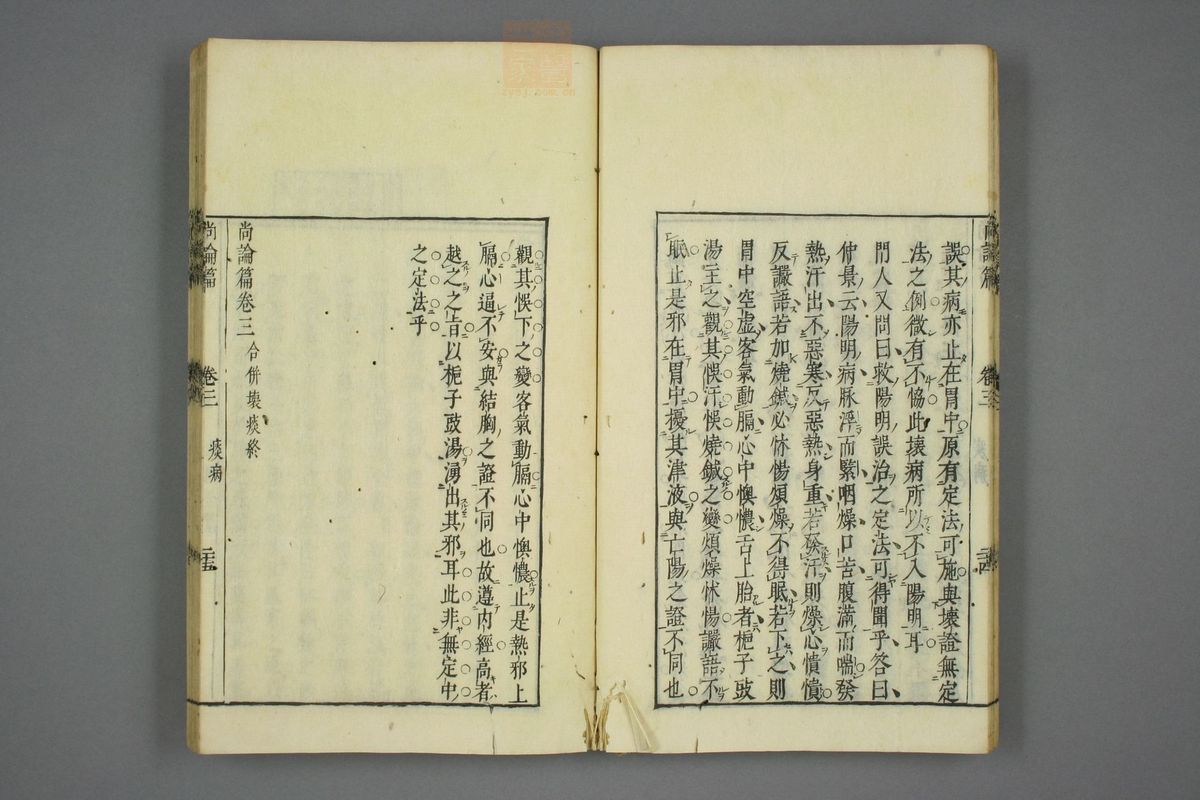 誤其病亦止在胃中原有定法可施與壞證無定
法之例微有不協此壞病所以不入陽明耳
門人又問曰救陽明誤治之定法可得聞乎答曰
仲景云陽明病脉浮而緊咽燥口苦腹滿而喘發
熱汗出不惡寒反惡熱身重若發汗則燥心憒憒
反讝語若加燒鍼必怵惕煩燥不得眠若下之則
胃中空虛客氣動膈心中懊憹舌上胎者梔子豉
湯主之觀其悞汗悞燒鍼之變煩燥怵惕讝語不
眠止是邪在胃中擾其津液與亡陽之證不同也
尚論篇
卷三
痰病
二十四
觀其悞下之變客氣動膈心中懊憹止是熱邪上
膈心逼不安與結胸之證不同也故遵內經高者
越之之旨以梔子豉湯湧出其邪耳此非無定中
之定法乎
尚論篇卷三 合併壞痰終
尚論篇
卷三
痰病
二十五
zysj.com.cn